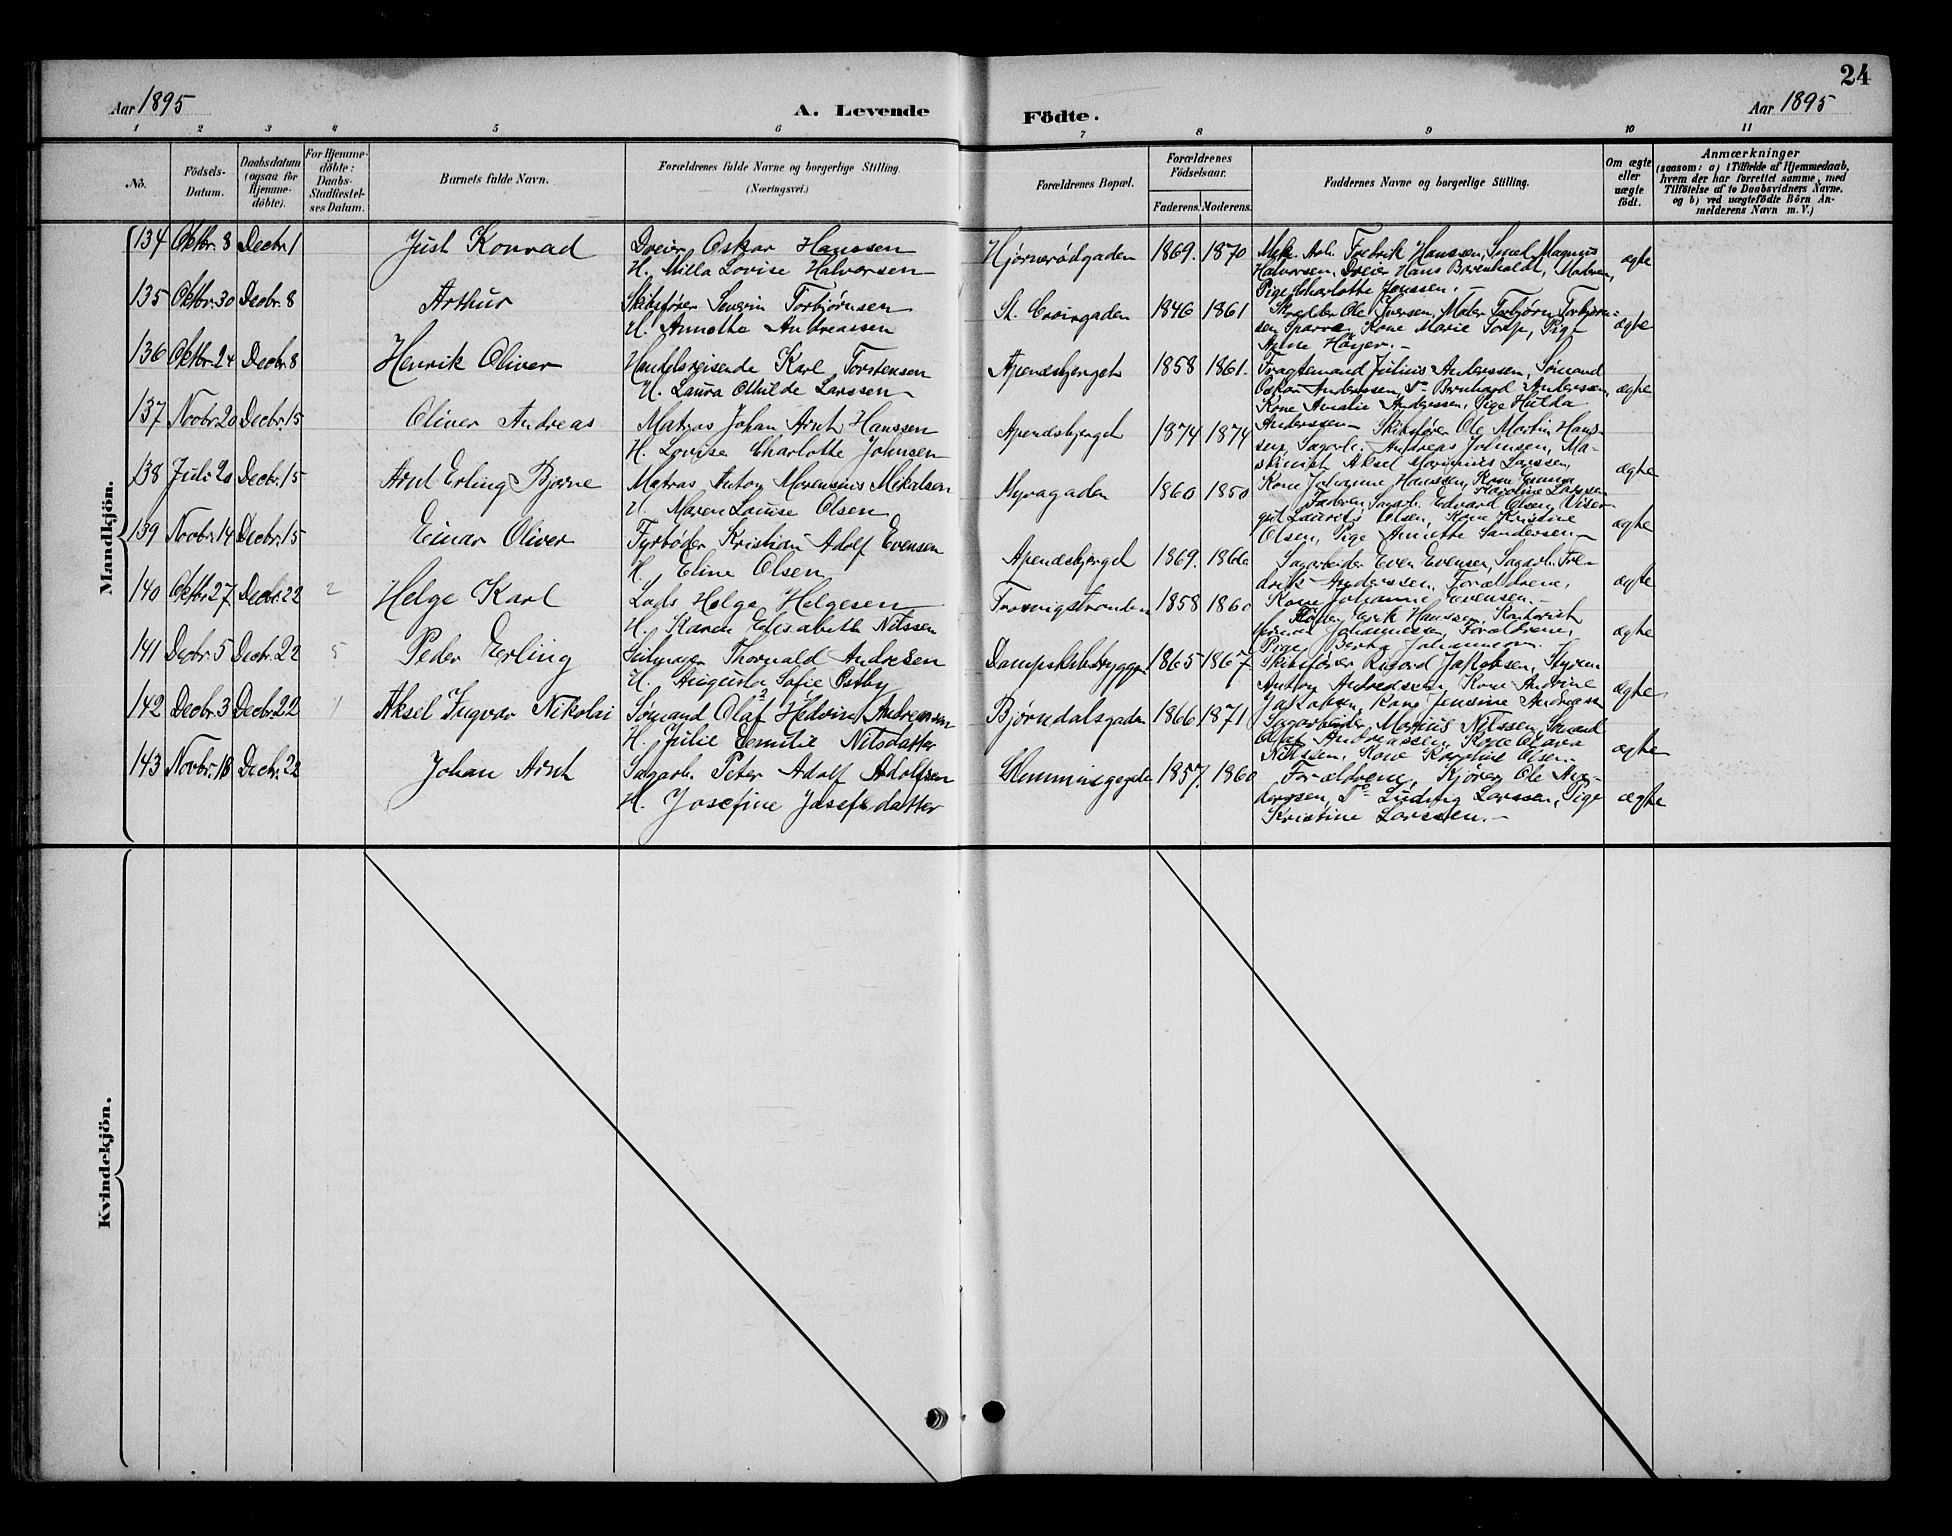 24
Aar 1895
A. Levende
Födte.
Aar 1895
1 2 3 4 5 6 7 8 9 10 11
No.
Födsels-
Datum.
Daabsdatum
(ogsaa för
Hjemme-
döbte).
For Hjemme-
döbte:
Daabs-
Stadfæstel-
ses Datum.
Barnets fulde Navn.
Forældrenes fulde Navne og borgerlige Stilling.
(Næringsvei.)
Forældrenes Bopæl.
Forældrenes
Födselsaar.
Faderens. Moderens.
Faddernes Navne og borgerlige Stilling.
Om ægte
eller
uægte
födt.
Anmærkninger
(saasom: a) i Tilfælde af Hjemmedaab,
hvem der har forrettet samme, med
Tilföielse af to Daabsvidners Navne,
og b) ved uægtefödte Börn An-
melderens Navn m. V.)
Mandkjön.
134 Oktbr. 8 Decbr. 1 Just Konrad
Dreier Oskar Hanssen
H. Milla Lovise Halvorsen
Hjørnerødgaden 1869. 1870
Mek. Arb. Fredrik Hanssen, Smed Magnus
Halvorsen, Dreier Hans Barenholdt, Madren,
Pige Charlotte Janssen.
ægte
135 Oktbr. 30 Decbr. 8 Arthur
Skibsfører Severin Torbjørnsen
H. Annette Andreassen
St. 1846 1861
Skrædder Ole Iversen, Maler Torbjørn Torbjørn-
sen Sparre, Kone Marie Torp, Pige
Anne Høyer.
ægte
136 Oktbr. 24 Decbr. 8 Henrik Oliver
Handelsreisende Karl Torstensen
H. Laura Othilde Larssen
Apendsbjerget 1858 1861.
Fragtemand Julius Anderssen, Sømand
Oskar Anderssen, Do Bernhard Anderssen,
Kone Amalie Anderssen, Pige Hulda
Anderssen
ægte
137 Novbr. 20 Decbr. 15 Oliver Andreas
Matros Johan Arnt Hanssen
H. Lovise Charlotte Johnsen
Apendsbjerget 1874 1874
Skibsfører Ole Martin Hans-
sen, Sagarb. Andreas Johnsen, Ma-
skinist Aksel Marinius Larssen,
Kone Johanne Hanssen, Kone Emma
Karoline Larssen
ægte
138 Juli 20 Decbr. 15 Arnt Erling Bjarne
Matros Anton Marensius Mikalsen
H. Maren Louise Olsen
Myragaden 1860 1850
Faderen, Sagarb. Edvard Olsen, Viser-
gut Laurits Olsen, Kone Kristine
Olsen, Pige Annette Sandersen
ægte
139 Novbr. 14 Decbr. 15 Einar Oliver
Fyrbøder Kristian Adolf Evensen
H. Eline Olsen
Apendsbjerget 1869. 1866
Sagarbeider Even Evensen, Sagarb. Fre-
drik Anderssen, Forældrene,
Kone Johanne Evensen.
ægte
140 Oktbr. 27 Decbr. 22 2 Helge Karl
Lods Helge Helgesen
H. Karen Elisabeth Nilssen
1858 1860
Erik Hanssen, Kontorist
Johannessen, Forældrene,
Pige Berta Johannesen.
ægte
141 Decbr. 5 Decbr. 22 5 Peder Erling
Seilmager Thorvald Andresen
H. Augusta Sofie Østby
Dampskibsbryggen 1865 1867.
Skibsfører Rikard Jakobsen, Styrm.
Anton Andreassen, Kone Andrine
Jakobsen, Kone Jensine Andreassen
ægte
142 Decbr. 3 Decbr. 22 1 Aksel Ingvar Nikolai
Sømand Olaf Hedvin Andreassen
H. Julie Emilie Nilsdatter
Bjørndalsgaden 1866 1871
Sagarbeider Marius Nilssen, Sømand
Olaf Andreassen, Kone Olava
Nilssen, Kone Josephine Olsen.
ægte
143 Novbr. 18 Decbr. 22 Johan Arnt
Sagarb. Peter Adolf Adolfsen
H. Josefine Josefsdatter
1857. 1860
Forældrene, Kjører Ole An-
derssen, Do Ludvig Larssen, Pige
Kristine Larssen.
ægte
Kvindekjön.